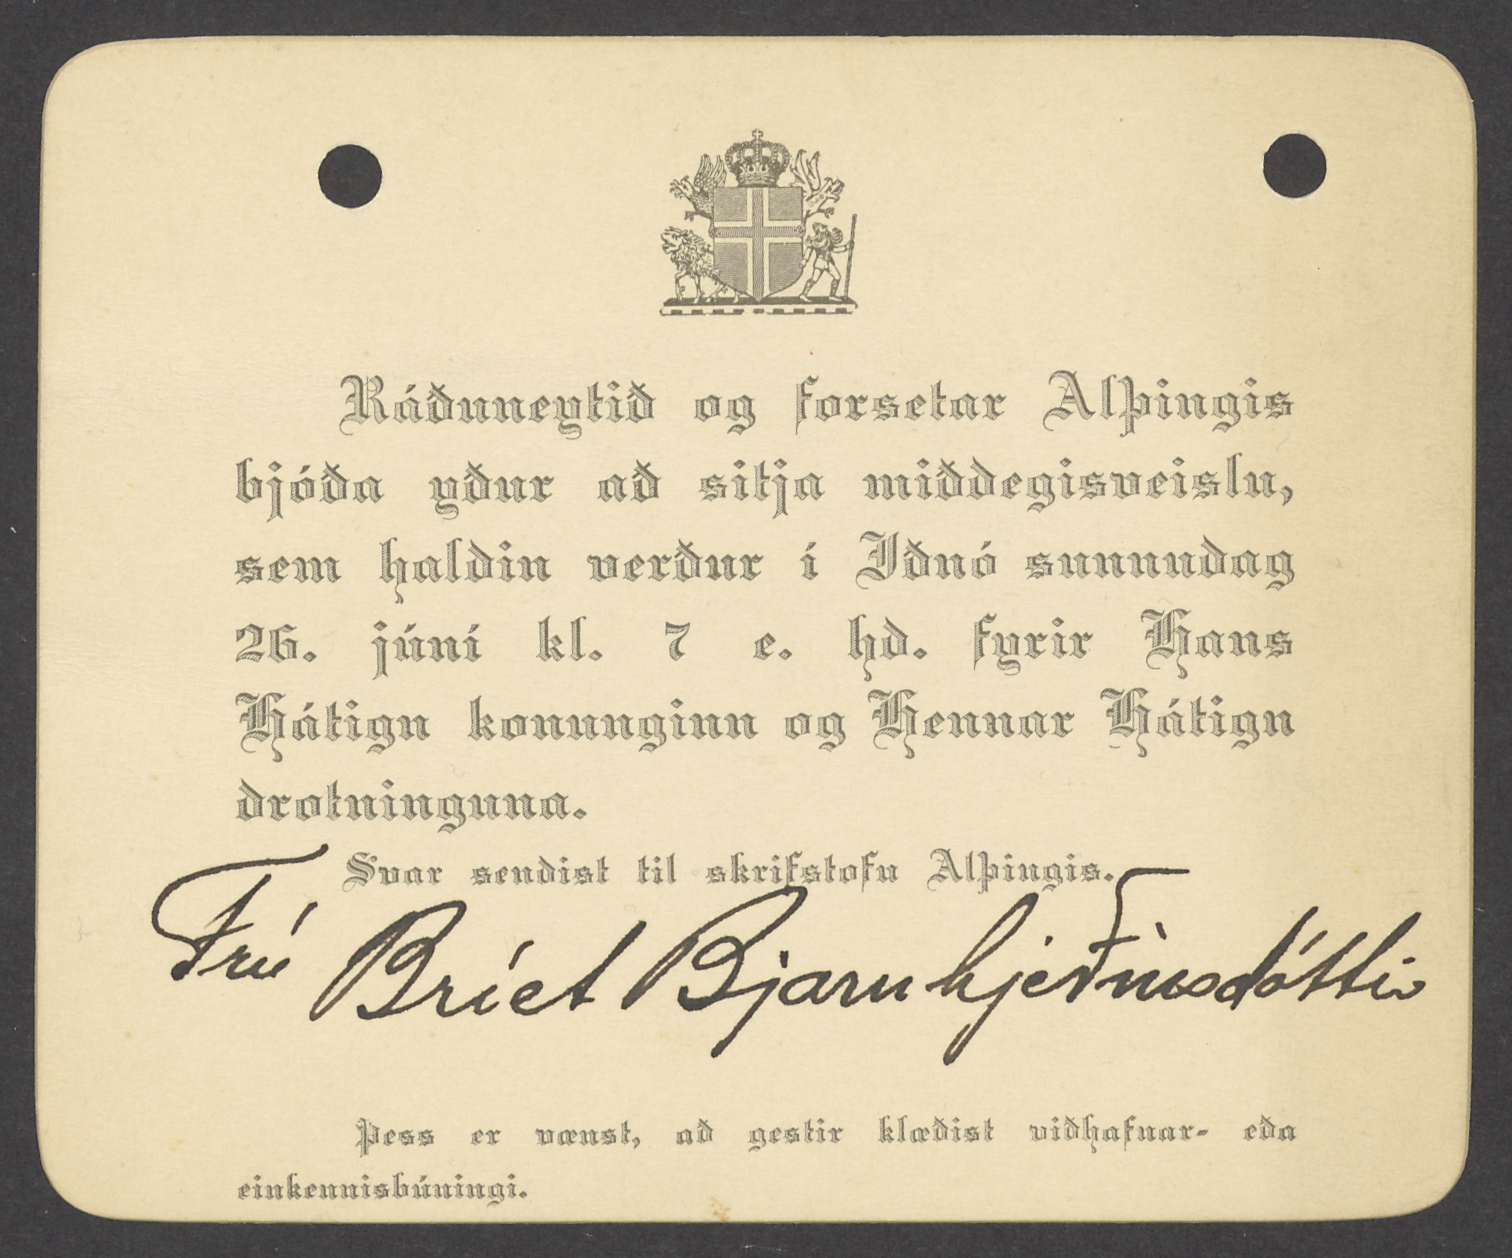 Ráðuneytið og forsetar Alþingis
bjóða yður að sitja miðdegisveislu,
sem haldin verður í Iðnó sunnudag
26. júní kl. 7 e. hd. fyrir Hans
Hátign konunginn og Hennar Hátign
drotninguna.
Svar sendist til skrifstofu Alþingis.
Frú Bríet Bjarnhjeðinsdóttir
Þess er vænst, að gestir klæðist viðhafnar- eða
einkennisbúningi.